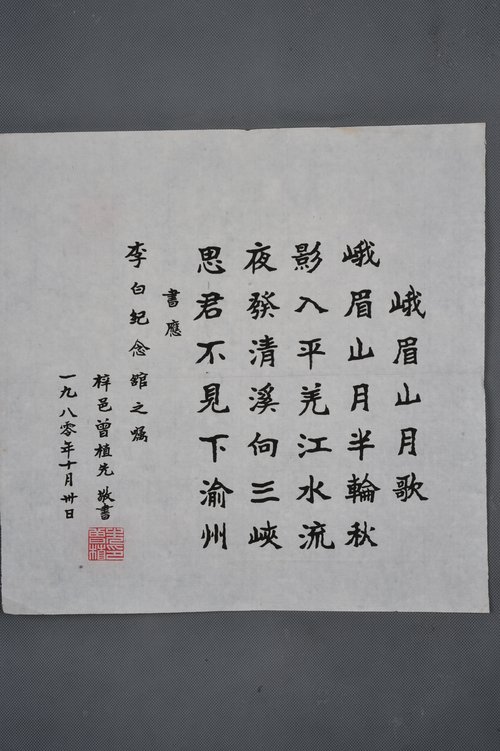 峨眉山月歌
峨眉山月半輪秋
影入平羌江水流
夜發清溪向三峽
思君不見下渝州
書應
李白紀念館之嘱
梓邑曾植先敬書
一九八零年十月卅日